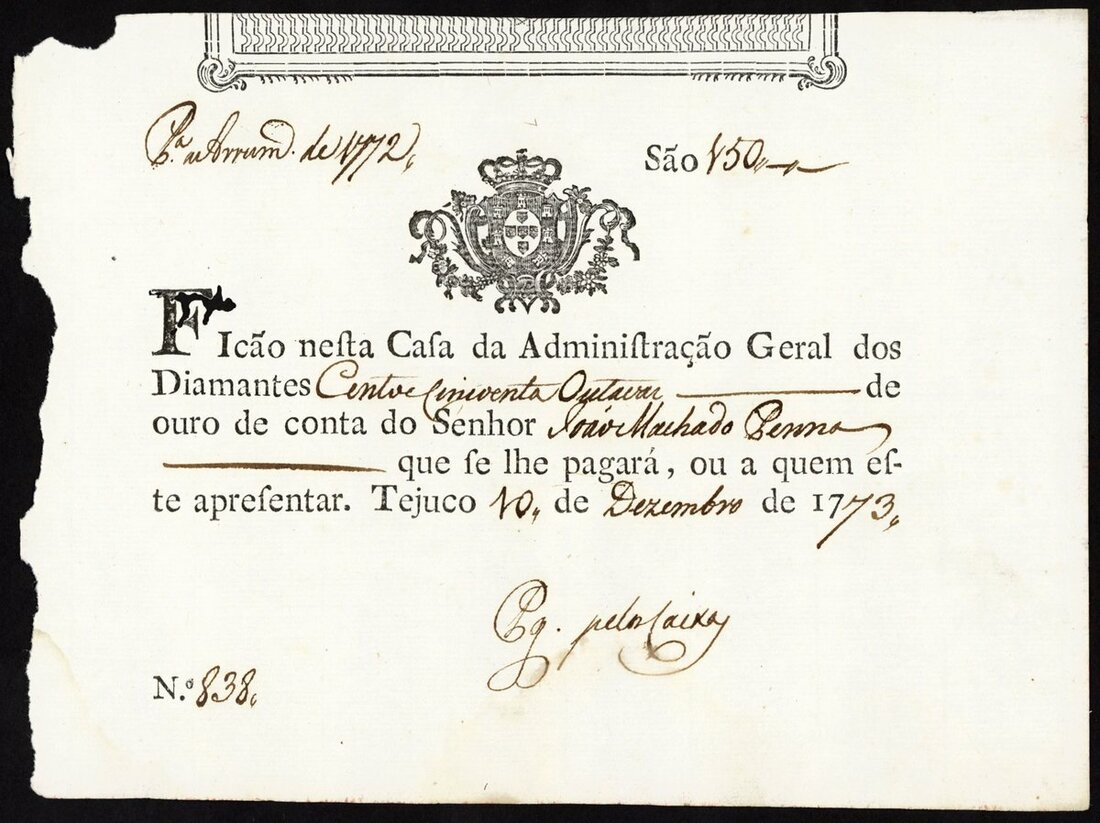 P.ª a Arrum. de 1772,,
São 150,,
FIcão neſta Caſa da Adminiſtração Geral dos
Diamantes Cento e Cincoenta Outavas de
ouro de conta do Senhor João Machado Penna
que ſe lhe pagará, ou a quem eſ-
te apreſentar. Tejuco 10,, de Dezembro de 1773,,
Pg. pelos Caixas
N.º 838,,